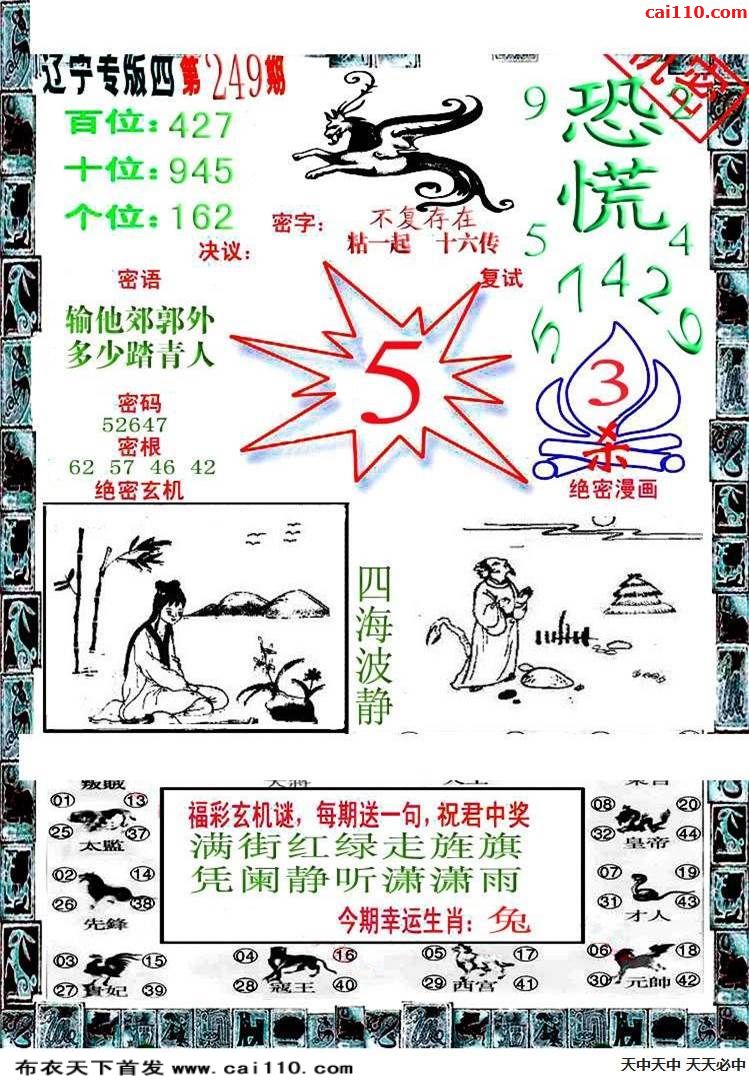 cai110.com
辽宁专版四 第'249期
百位：427
十位：945
个位：162
9 恐慌 2
5 4
57429
密字： 不复存在
粘一起 十六传
决议：
复试
密语
输他郊郭外
多少踏青人
5
3
杀
密码
52647
密根
62 57 46 42
绝密玄机
绝密漫画
四海波静
01 13
25 37
太監
02 14
26 38
先鋒
03 15
27 39
貴妃
04 16
28 40
寇王
05 17
29 41
西宫
06 18
30 42
元帥
07 19
31 43
才人
08 20
32 44
皇帝
福彩玄机谜，每期送一句，祝君中奖
满街红绿走旌旗
凭阑静听潇潇雨
今期幸运生肖：兔
布衣天下首发 www.cai110.com
天中天中 天天必中